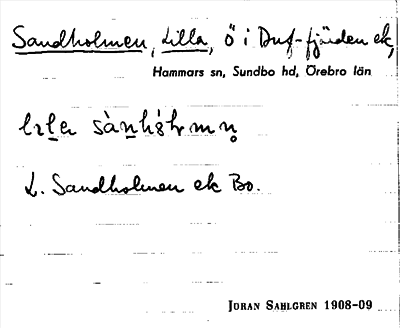 Sandholmen, Lilla, ö i Duf-fjärden ek,
Hammars sn, Sundbo hd, Örebro län
sàn
L. Sandholmen ek Bo.
JÖRAN SAHLGREN 1908-09